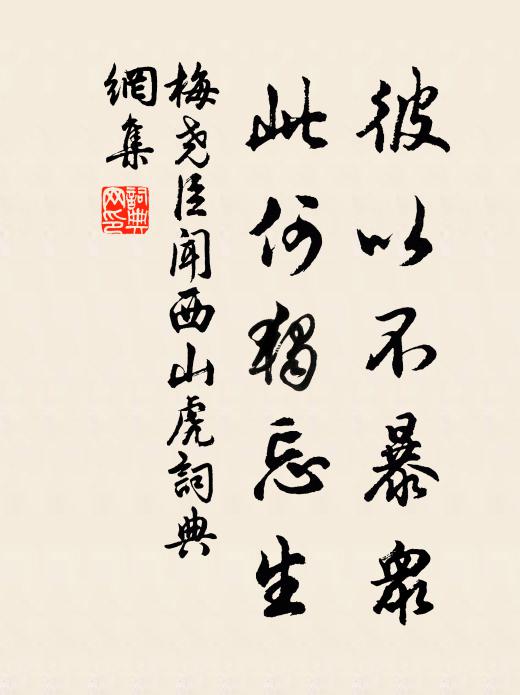 彼以不暴眾
此何獨忘生
梅尧臣聞西山虎詞典
網集
詞典
网印